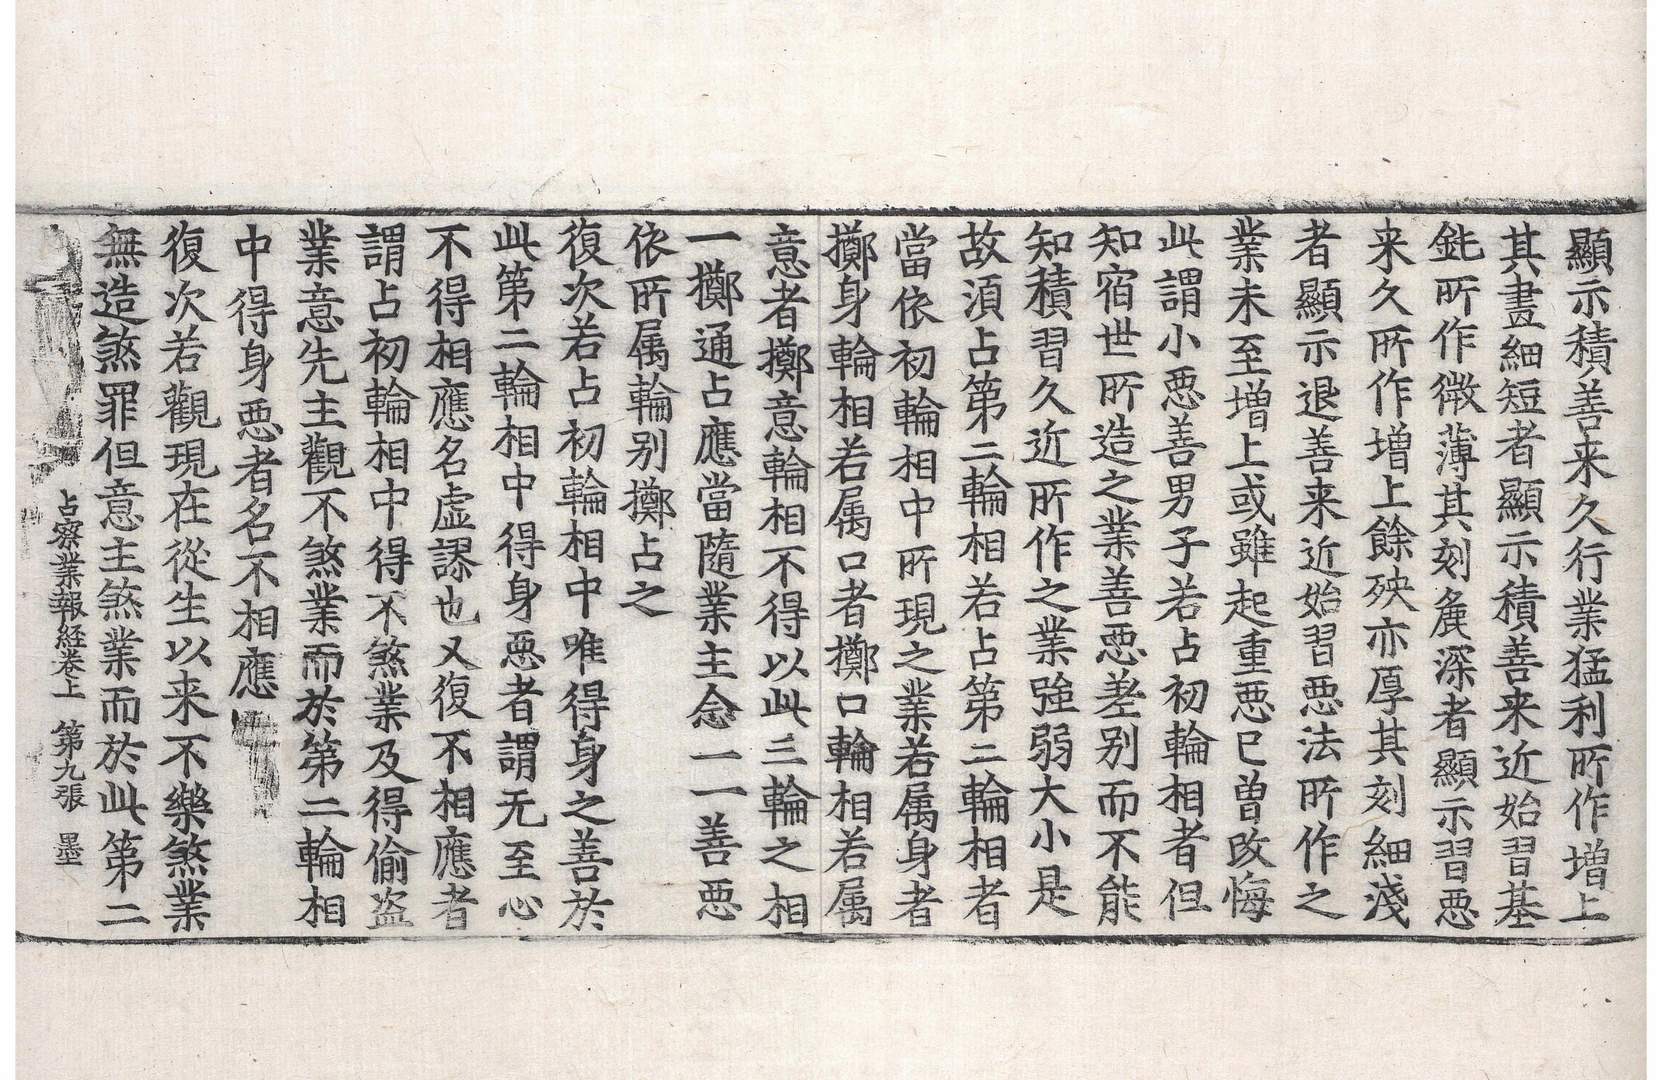 顯示積善来久行業猛利所作增上
其畫細短者顯示積善来近始習基
鈍所作微薄其刻麁深者顯示習惡
来久所作增上餘殃亦厚其刻細淺
者顯示退善来近始習惡法所作之
業未至增上或雖起重惡已曾改悔
此謂小惡善男子若占初輪相者但
知宿世所造之業善惡差別而不能
知積習久近所作之業強弱大小是
故須占第二輪相若占第二輪相者
當依初輪相中所現之業若属身者
擲身輪相若属口者擲口輪相若属
意者擲意輪相不得以此三輪之相
一擲通占應當隨業主念一一善惡
依所属輪別擲占之
復次若占初輪相中唯得身之善於
此第二輪相中得身惡者謂无至心
不得相應名虛謬也又復不相應者
謂占初輪相中得不煞業及得偷盗
業意先主觀不煞業而於第二輪相
中得身惡者名不相應
復次若觀現在從生以来不樂煞業
無造煞罪但意主煞業而於此第二
占察業報経卷上 第九張 墨